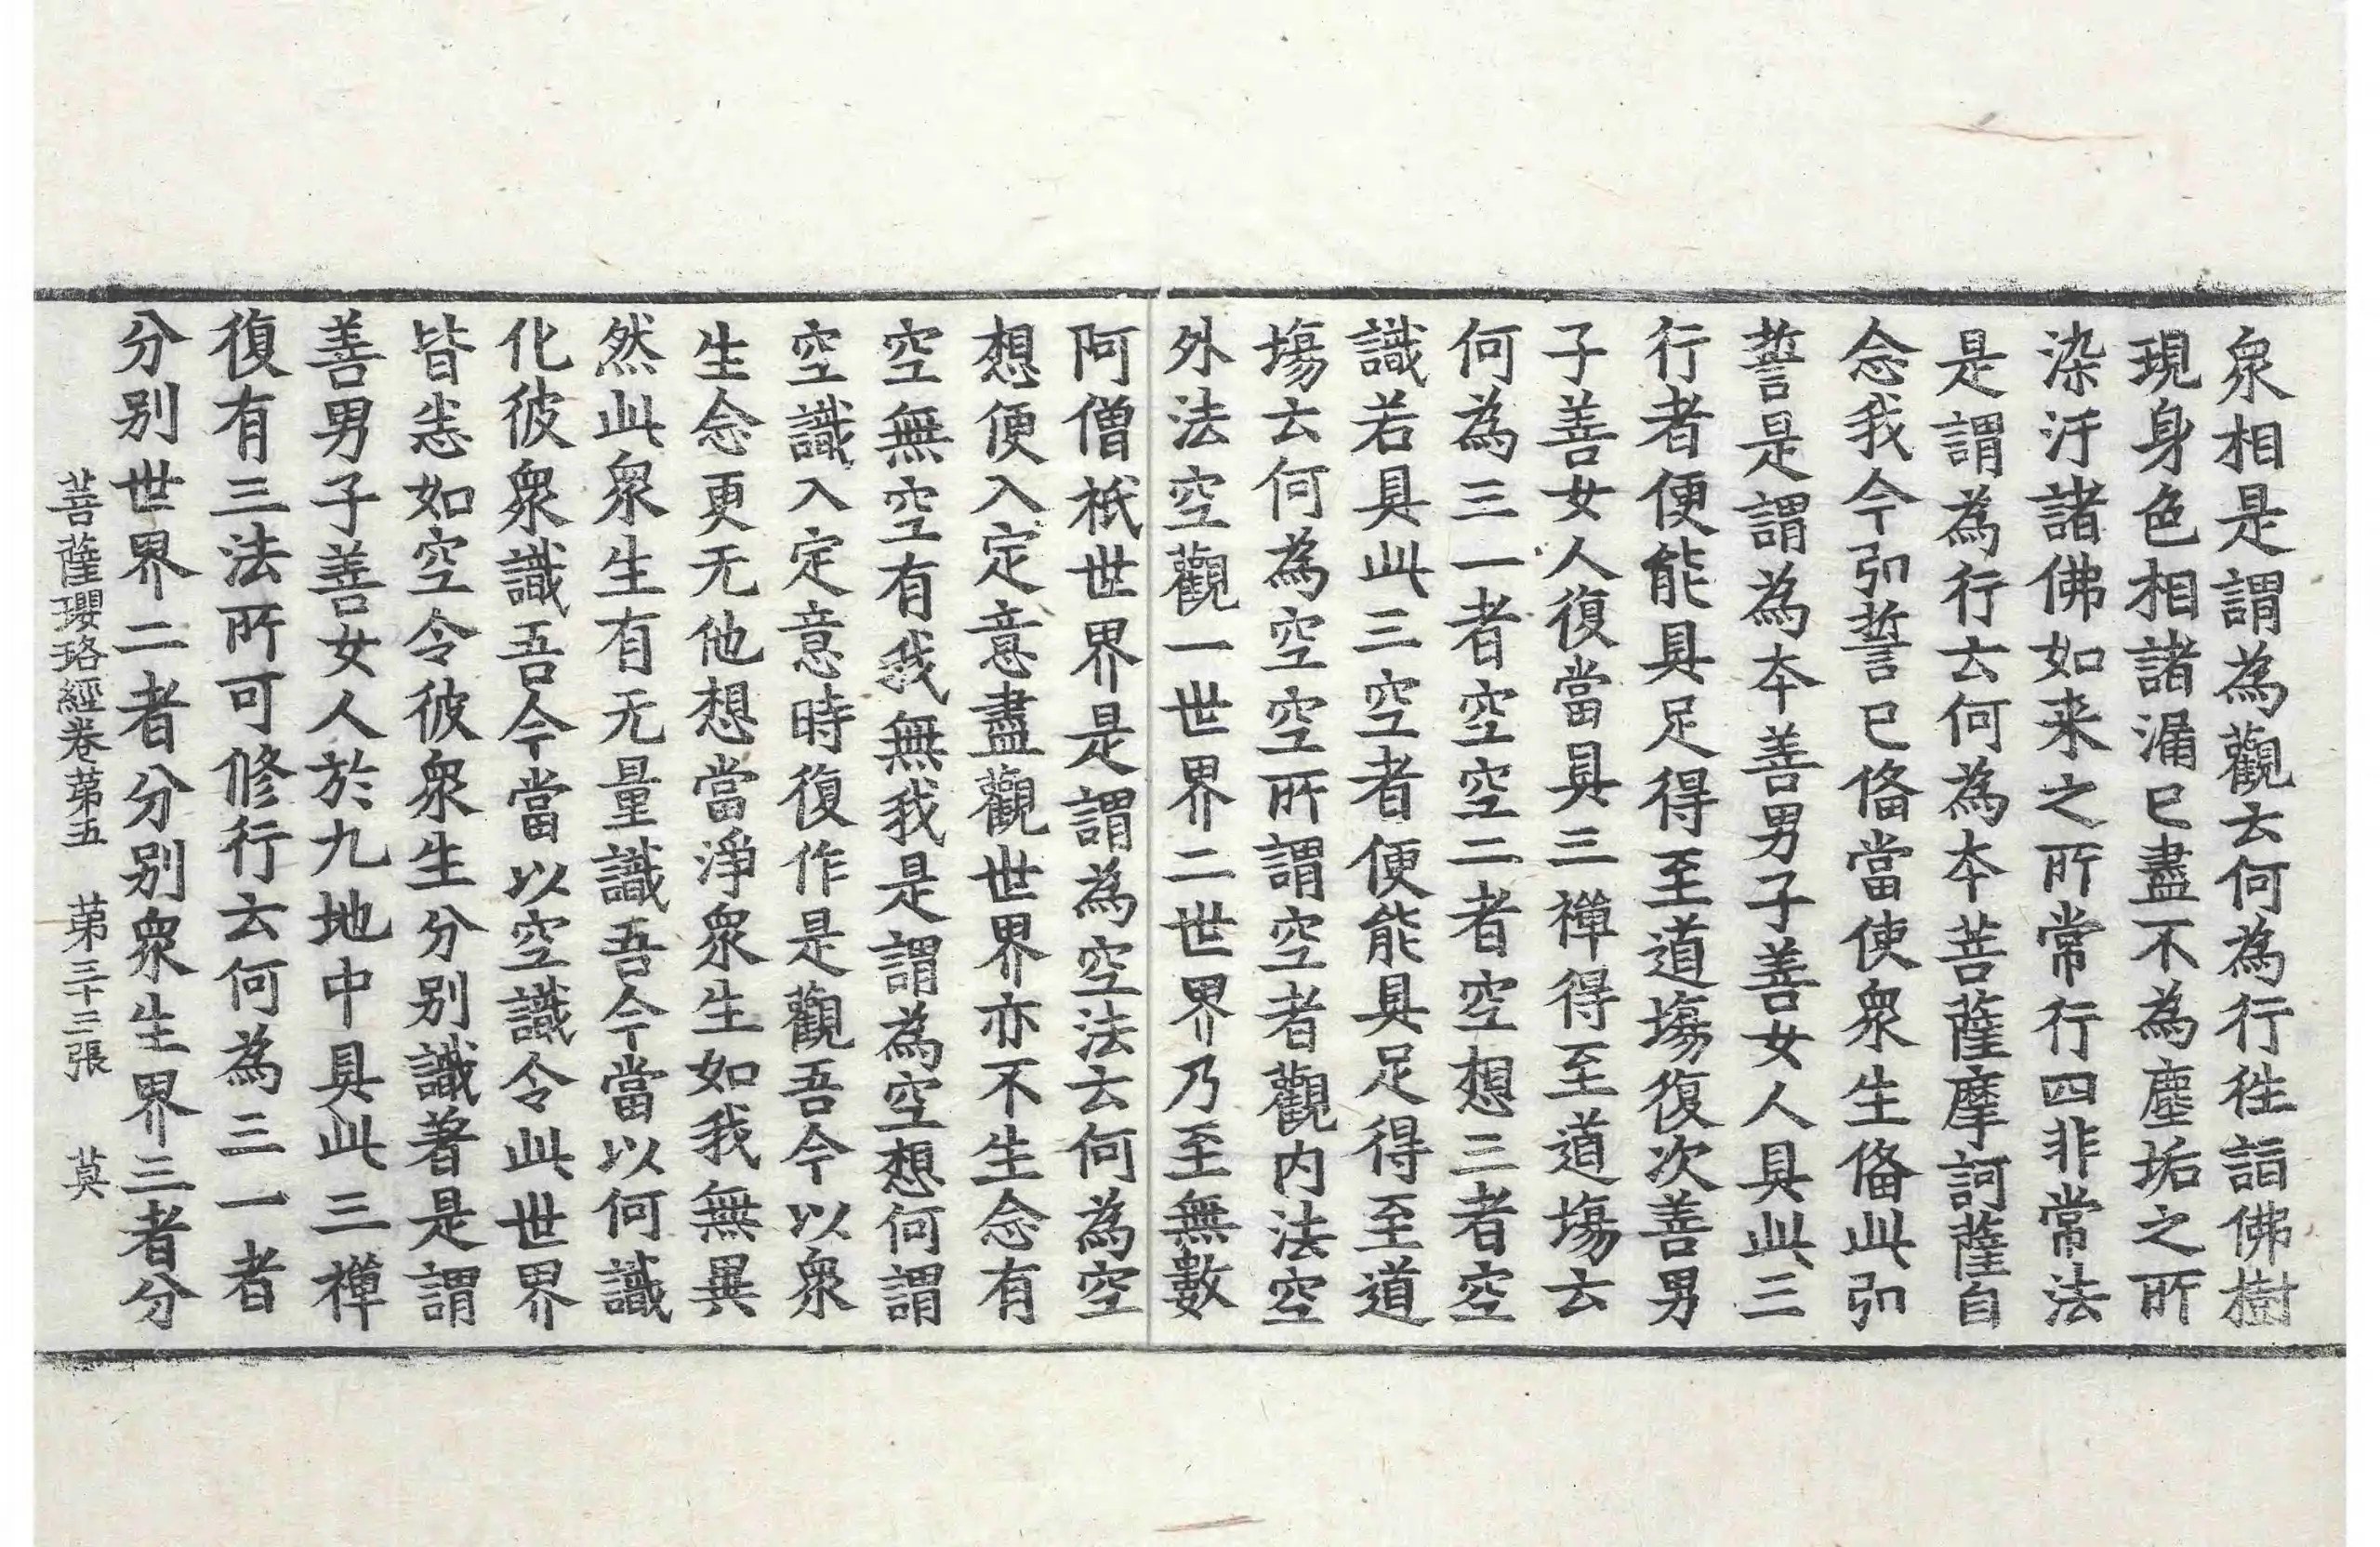 衆相是謂為觀云何為行往詣佛樹
現身色相諸漏已盡不為塵垢之所
染汙諸佛如来之所常行四非常法
是謂為行云何為本菩薩摩訶薩自
念我今弘誓已俻當使衆生俻此弘
誓是謂為本善男子善女人具此三
行者便能具足得至道場復次善男
子善女人復當具三禪得至道場云
何為三一者空空二者空想三者空
識若具此三空者便能具足得至道
場云何為空空所謂空者觀内法空
外法空觀一世界二世界乃至無數
阿僧祇世界是謂為空法云何為空
想便入定意盡觀世界亦不生念有
空無空有我無我是謂為空想何謂
空識入定意時復作是觀吾今以衆
生念更无他想當淨衆生如我無異
然此衆生有无量識吾今當以何識
化彼衆識吾今當以空識令此世界
皆悉如空令彼衆生分别識著是謂
善男子善女人於九地中具此三禪
復有三法所可修行云何為三一者
分别世界二者分别衆生界三者分
菩薩瓔珞經卷第五　第三十二張　莫